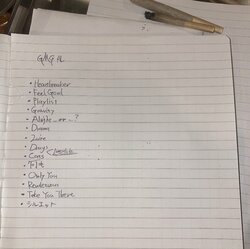 • Heartbreaker
• Feel Good
• Playlist
• Gravity
• Alright ... or ... ?
• Dream
• Juice
• Days
• Cons
• Only You
• Rendezvous
• Take You There
• シルエット